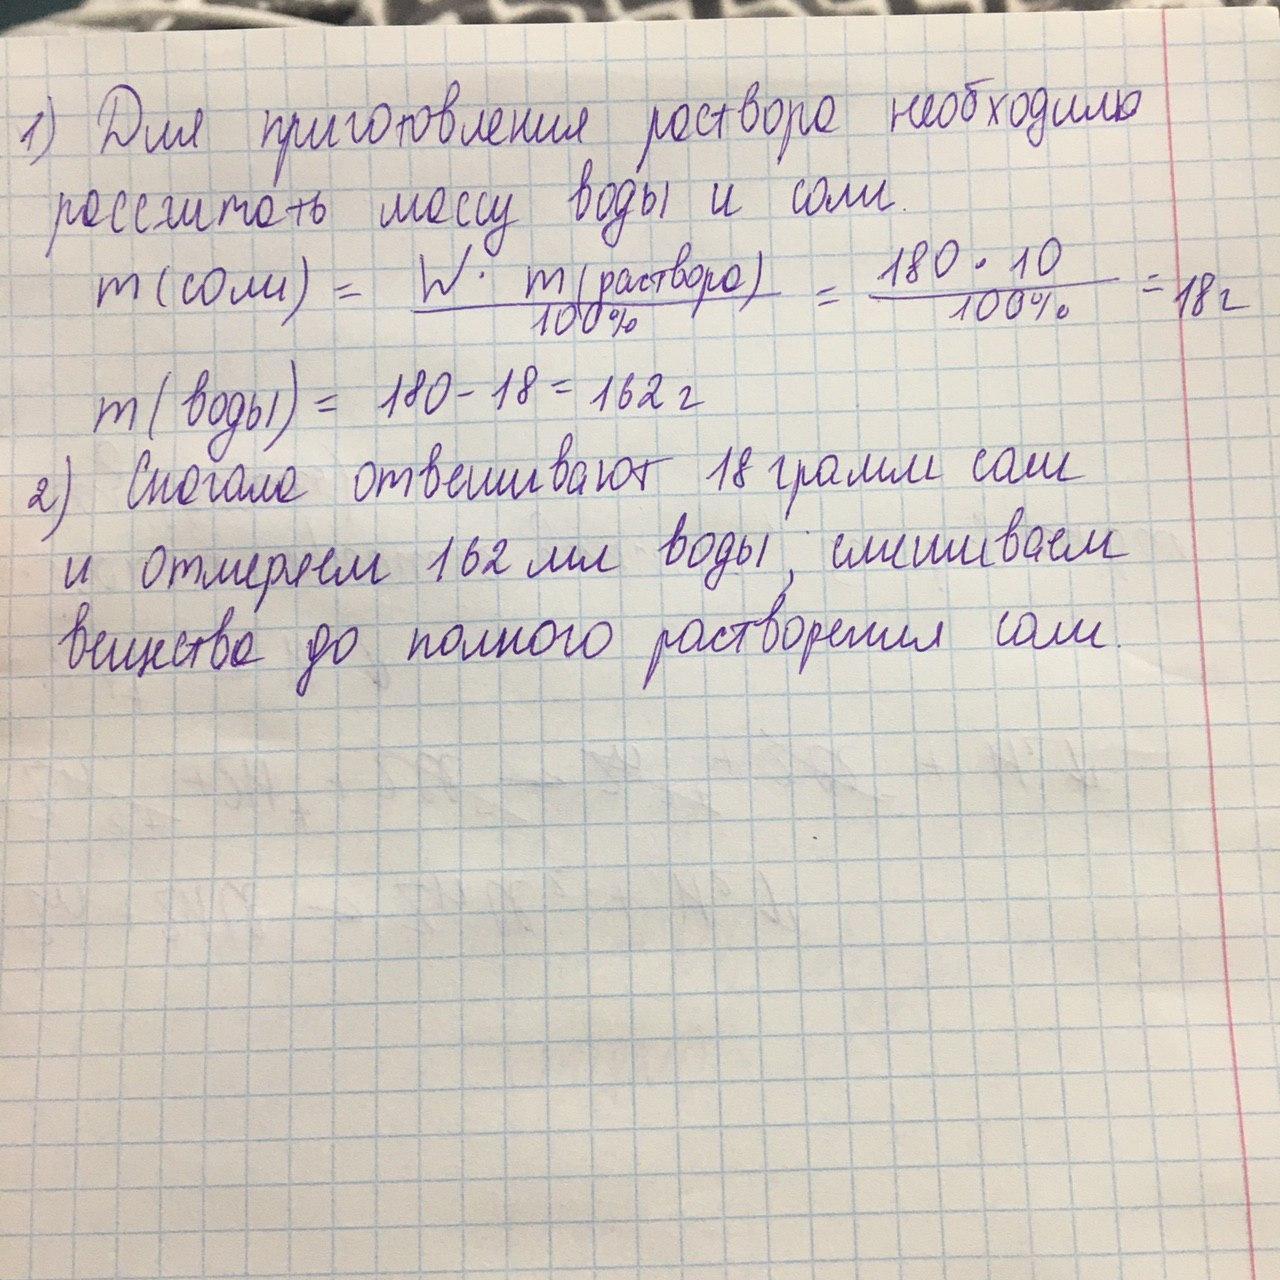 1) Для приготовления раствора необходимо
рассчитать массу воды и соли.
m(соли) = W · m(раствора) / 100% = 180 · 10 / 100% = 18г
m(воды) = 180 - 18 = 162 г
2) Сначала отвешивают 18 грамм соли
и отмеряем 162 мл воды, смешиваем
вещества до полного растворения соли.